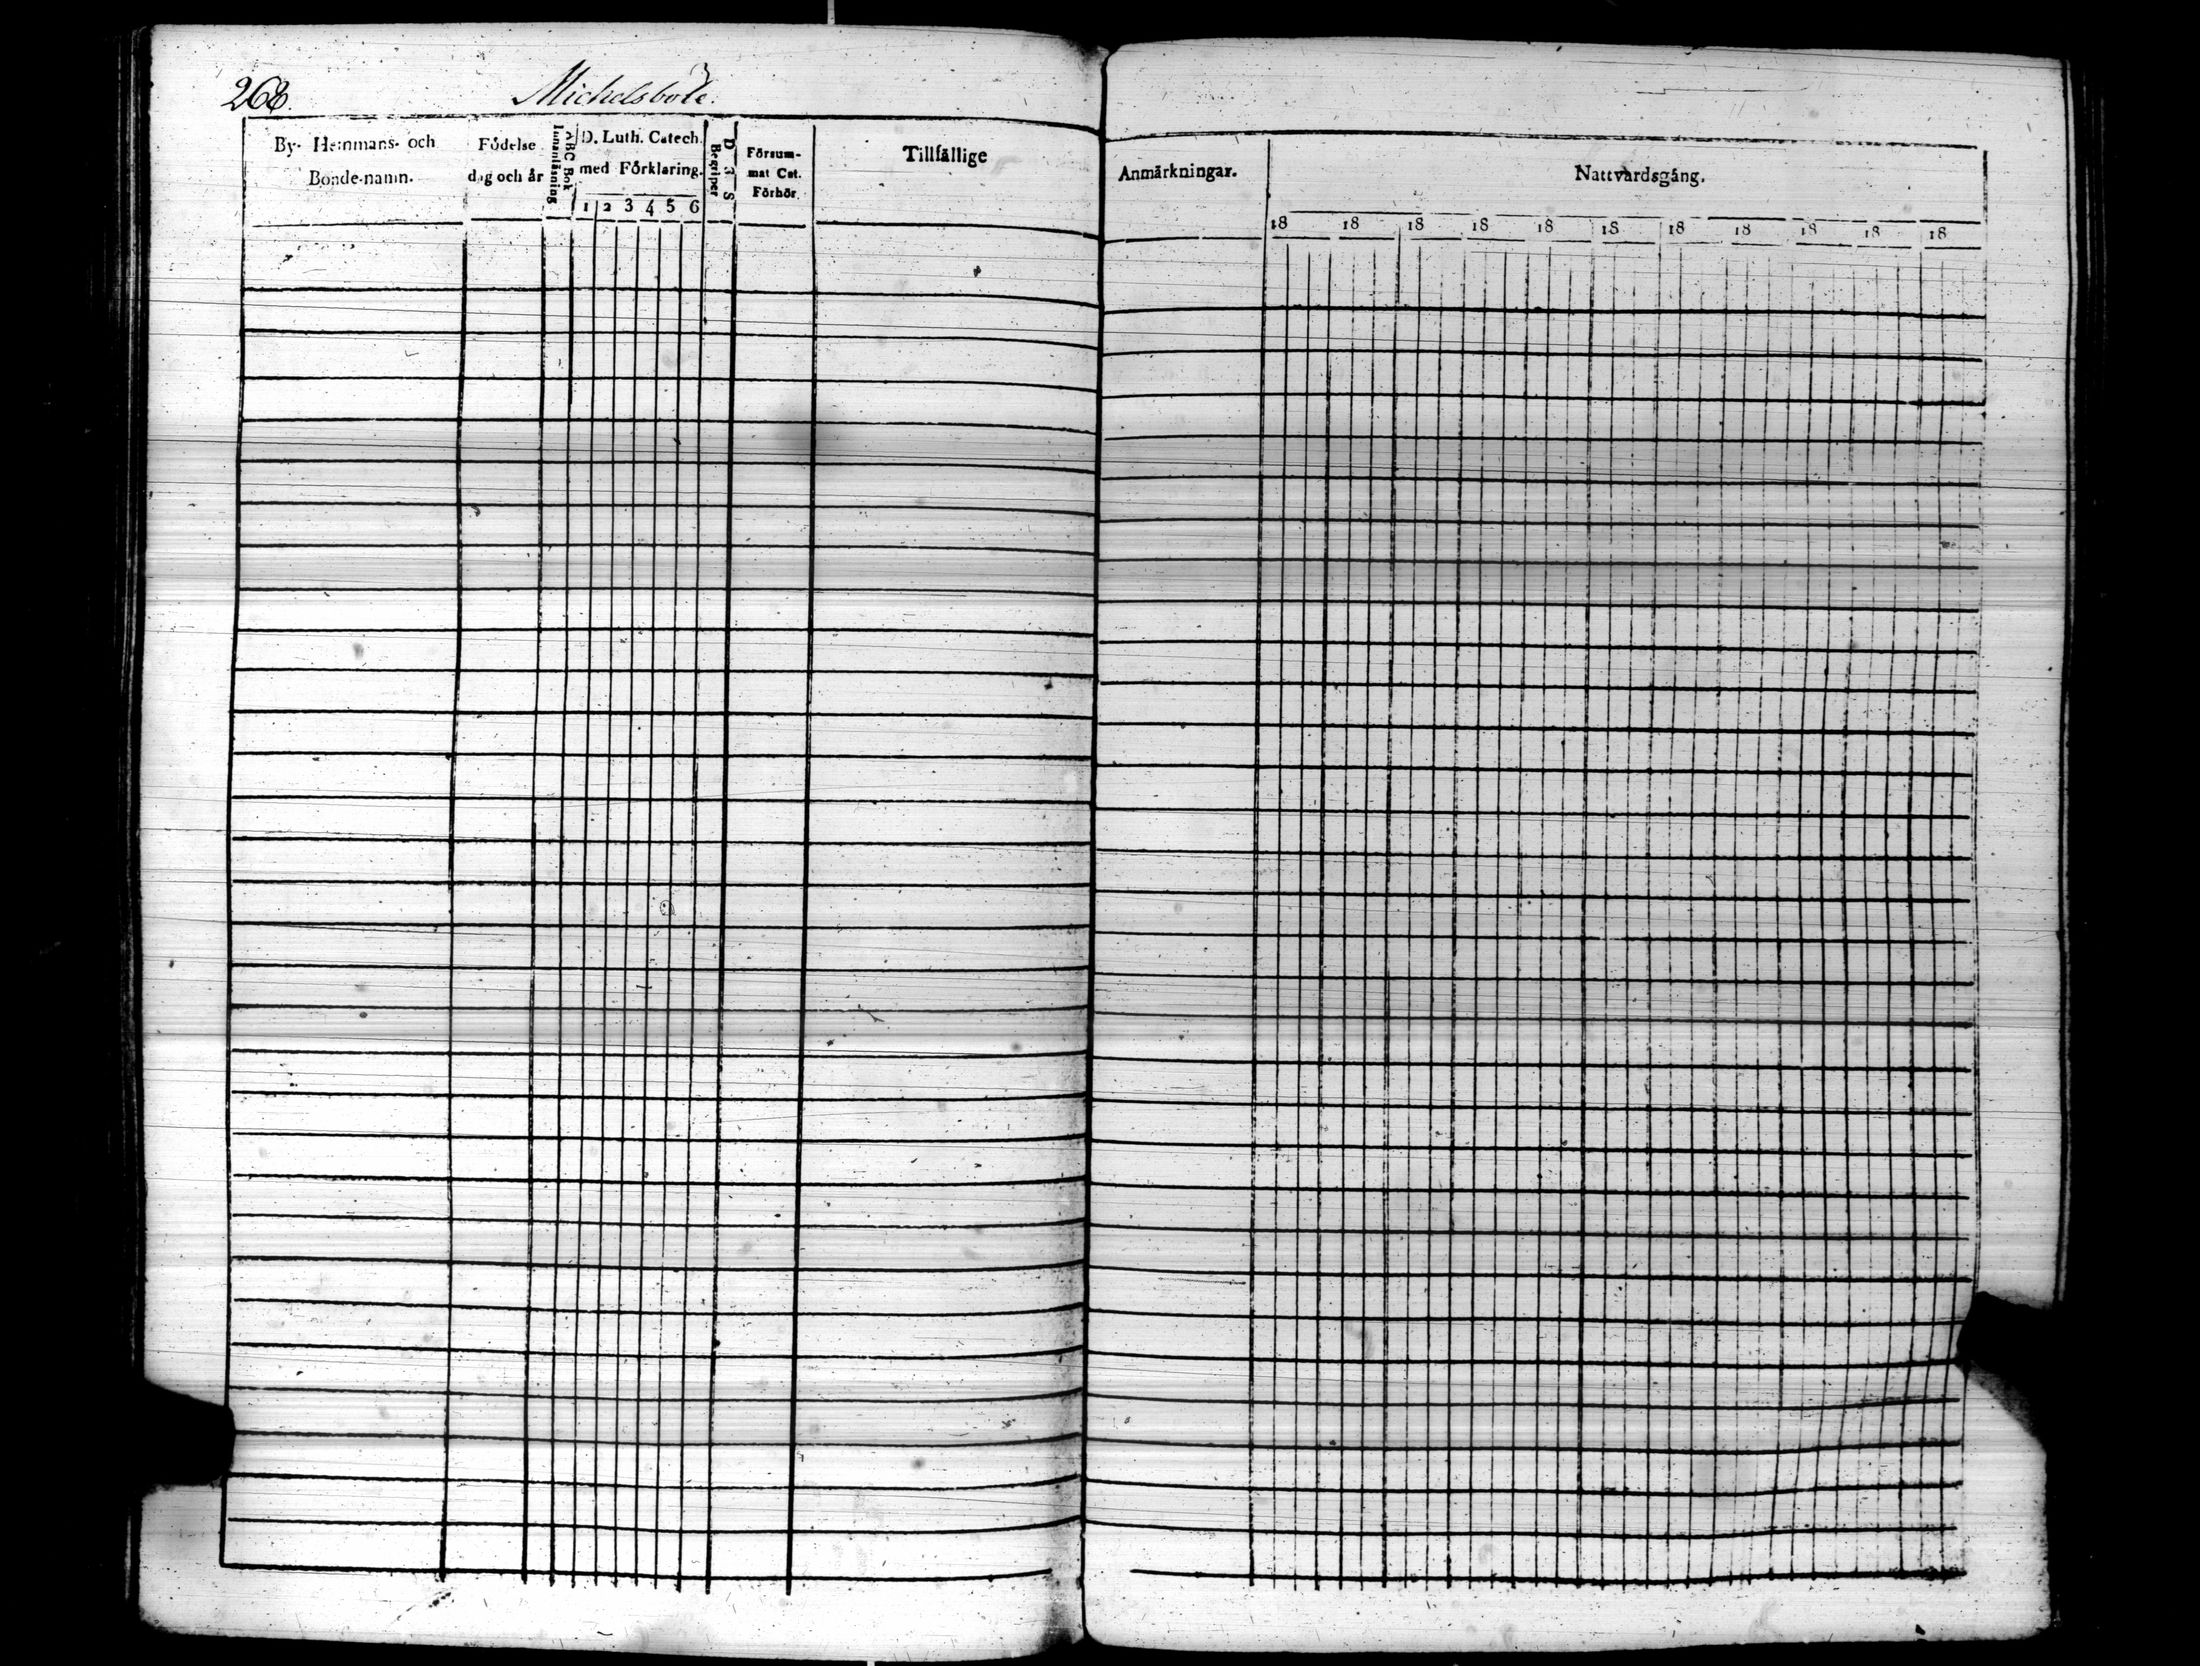 268
Michelsböle.
By- Hemmans- och
Bonde-namn.
Födelse
dag och år
Innanläsning
ABC Bok
D. Luth. Catech.
med Förklaring.
1 2 3 4 5 6
Begriper
D 3 S
Försum-
mat Cat.
Förhör
Tillfällige
Anmärkningar.
Nattvardsgång.
18 18 18 18 18 18 18 18 18 18 18